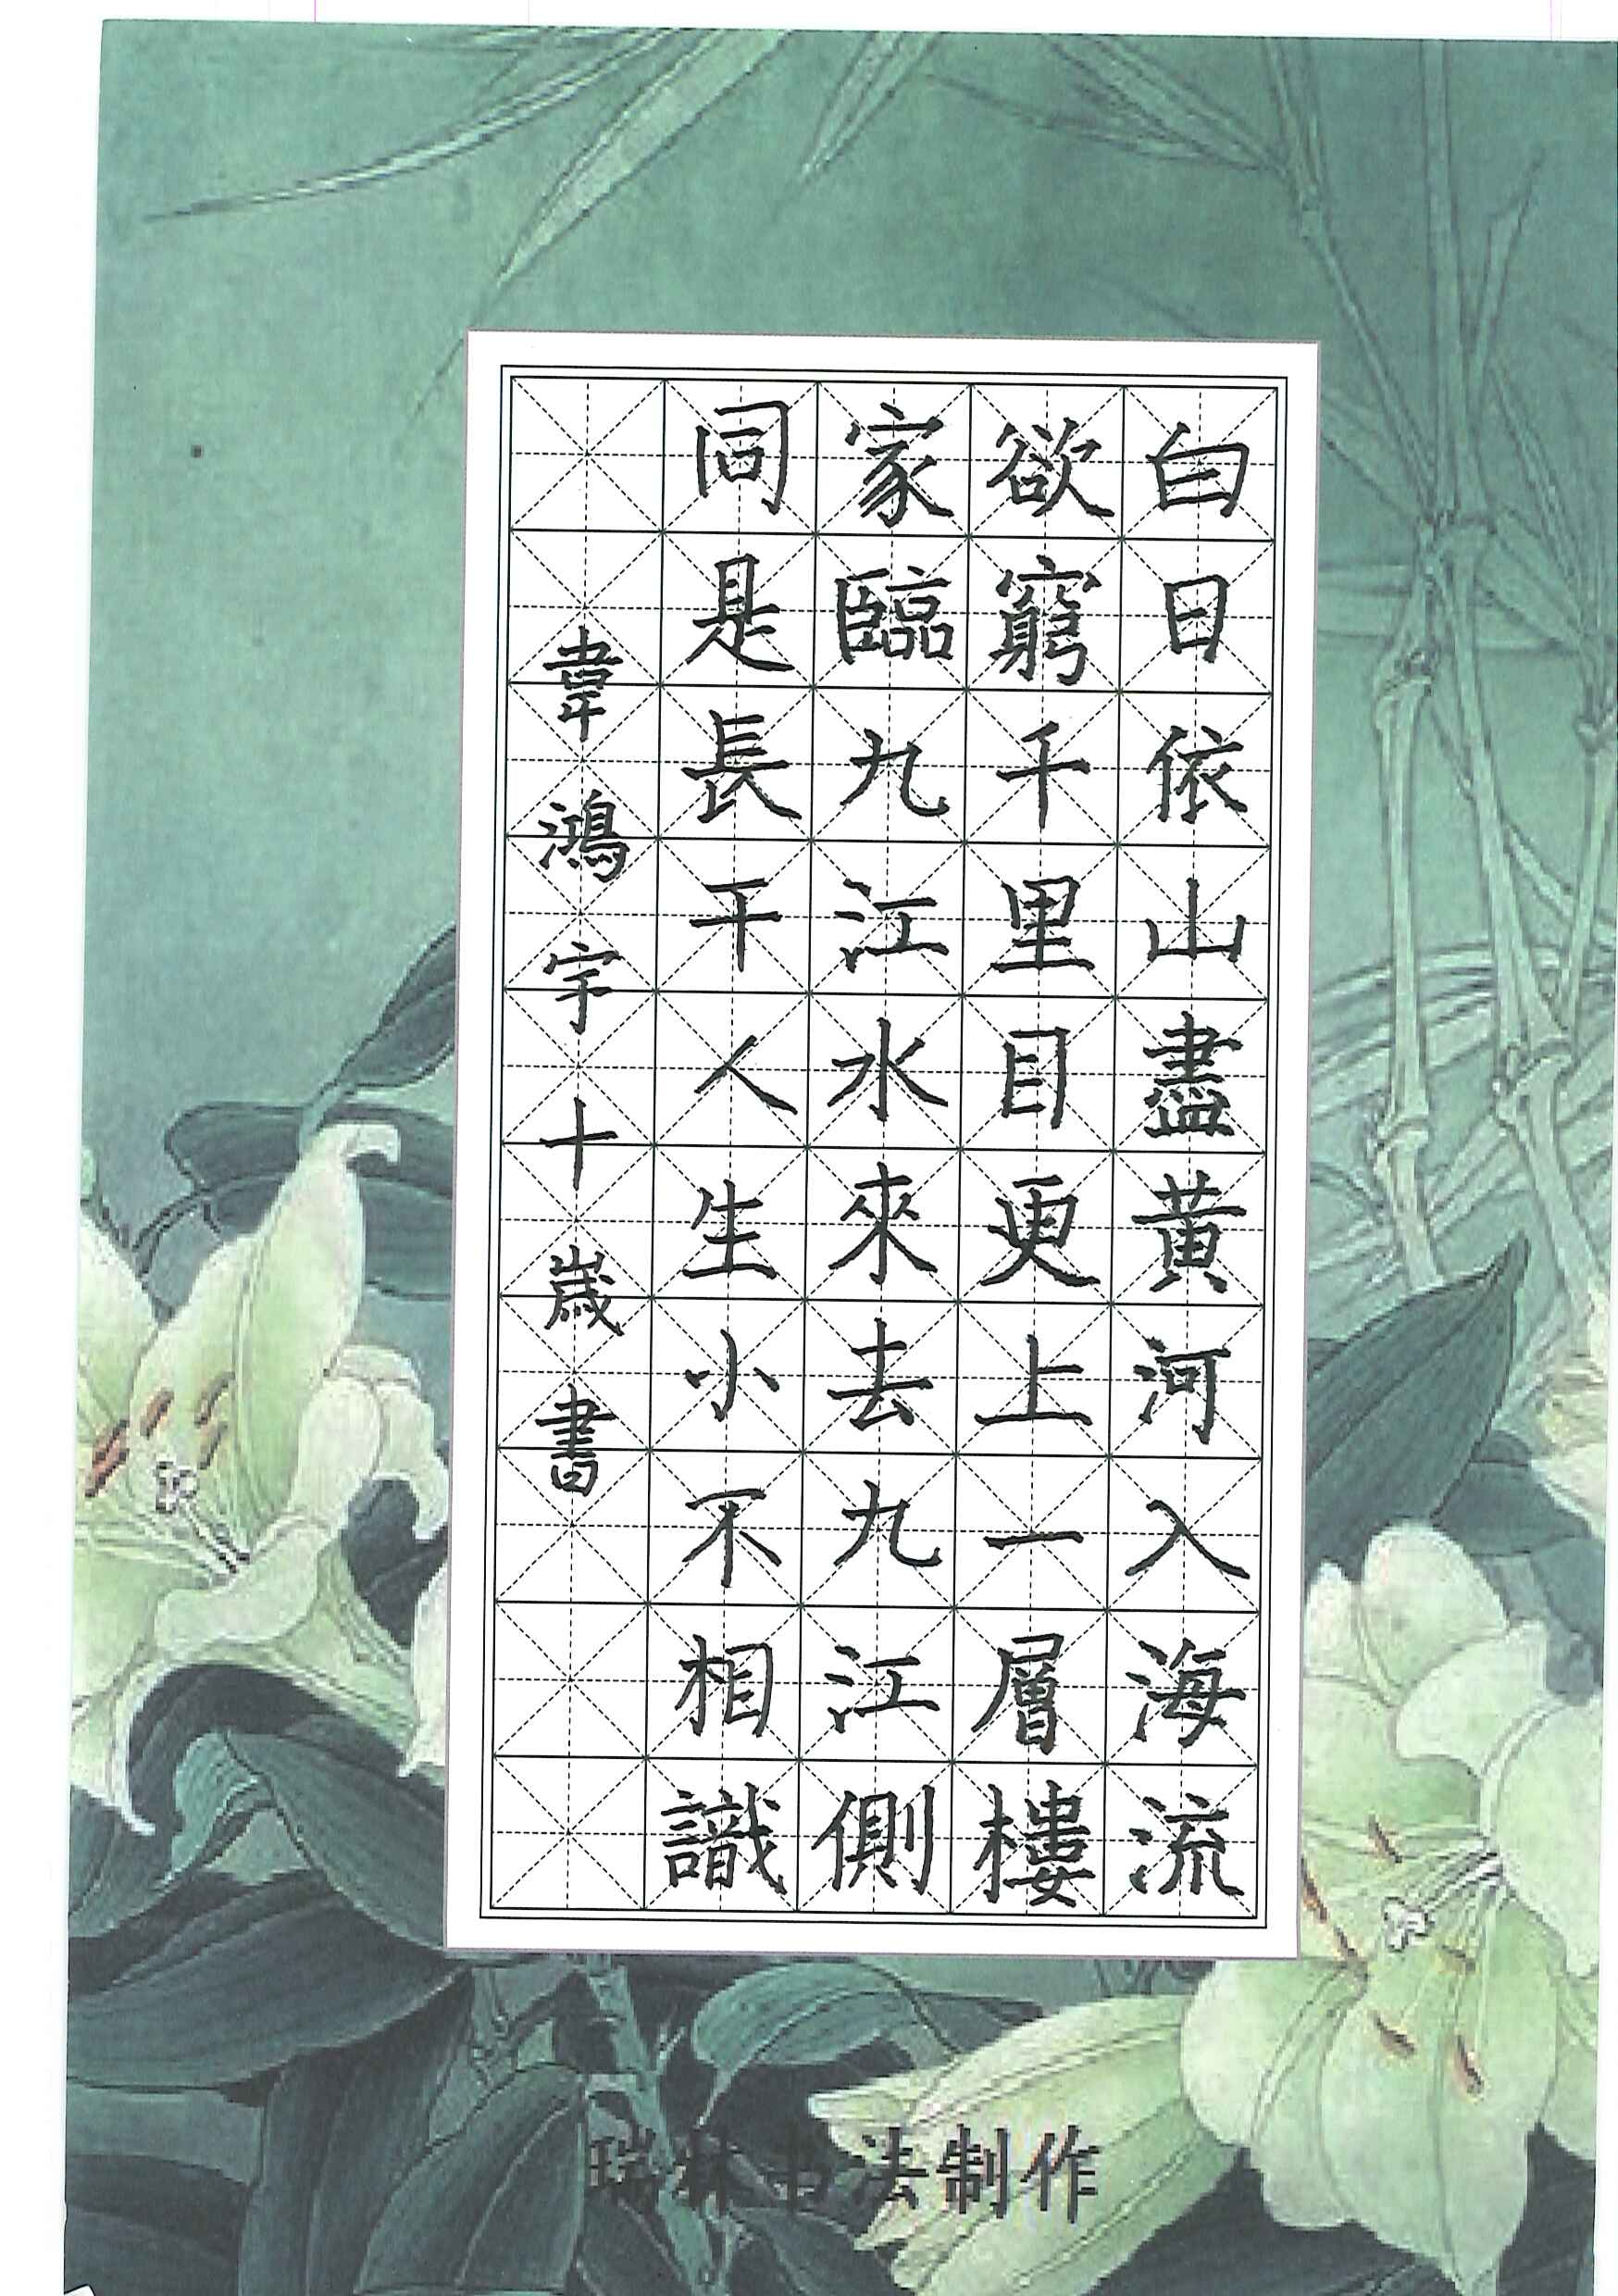 白日依山盡黃河入海流
欲窮千里目更上一層樓
家臨九江水來去九江側
同是長干人生小不相識
韋鴻宇十歲書
瑞林书法制作